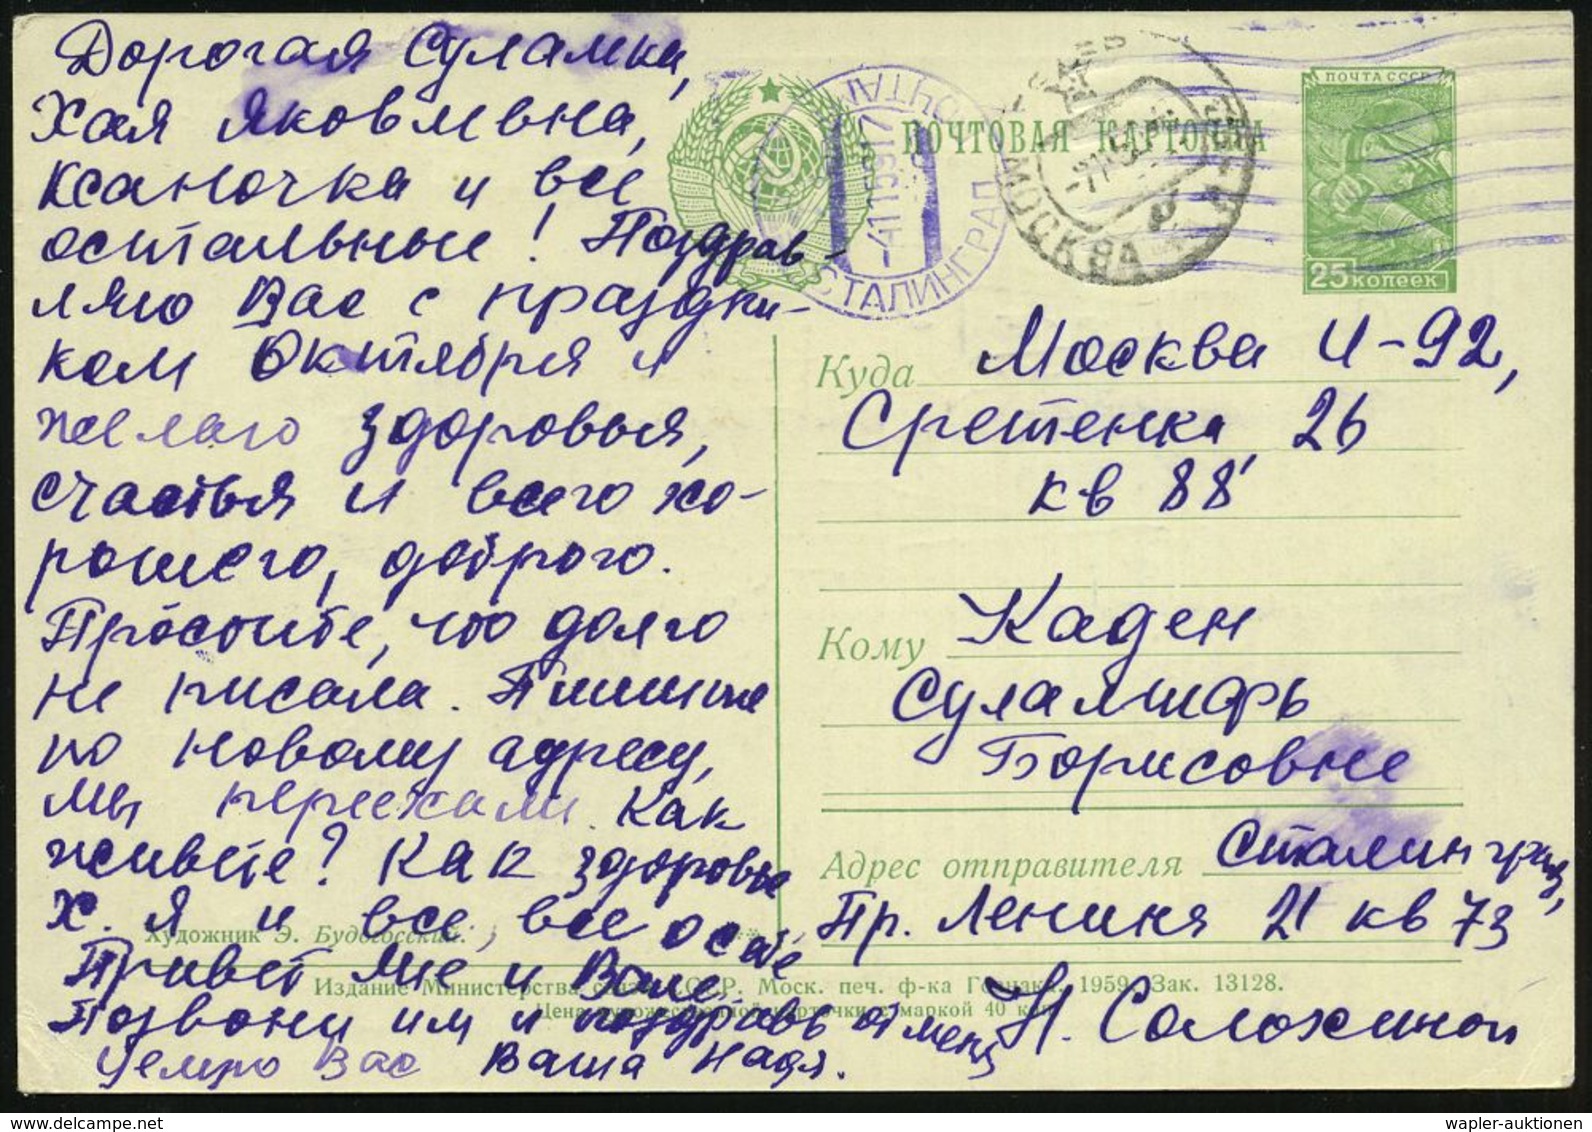 Дорогая Суламки,
Хая Яковлевна,
Ксаночка и все
остальные! Поздрав-
ляю Вас с праздни-
ком Октября и
желаю здоровья,
счастья и всего хо-
рошего, доброго.
Простите, что долго
не писала. Пишите
по новому адресу,
мы переехали. Как
живете? Как здоровье
Х. Я и все, все
Привет
Позвони им и поздравь от меня
Целую Вас Ваша Надя.
Художник Э. Будогосский.
Издание Министерства связи СССР. Моск. печ. ф-ка Гознака. 1959. Зак. 13128.
Цена художественной карточки с маркой 40 коп.
ПОЧТОВАЯ КАРТОЧКА
ПОЧТА СССР
25 копеек
СТАЛИНГРАД
ПОЧТАМТ
-4 11 59 17
МОСКВА
Куда Москва И-92,
Сретенка 26
кв 88
Кому Каден
Суламифь
Борисовне
Адрес отправителя Сталинград,
Пр. Ленина 21 кв 73
Н. Солохиной
wapler-auktionen